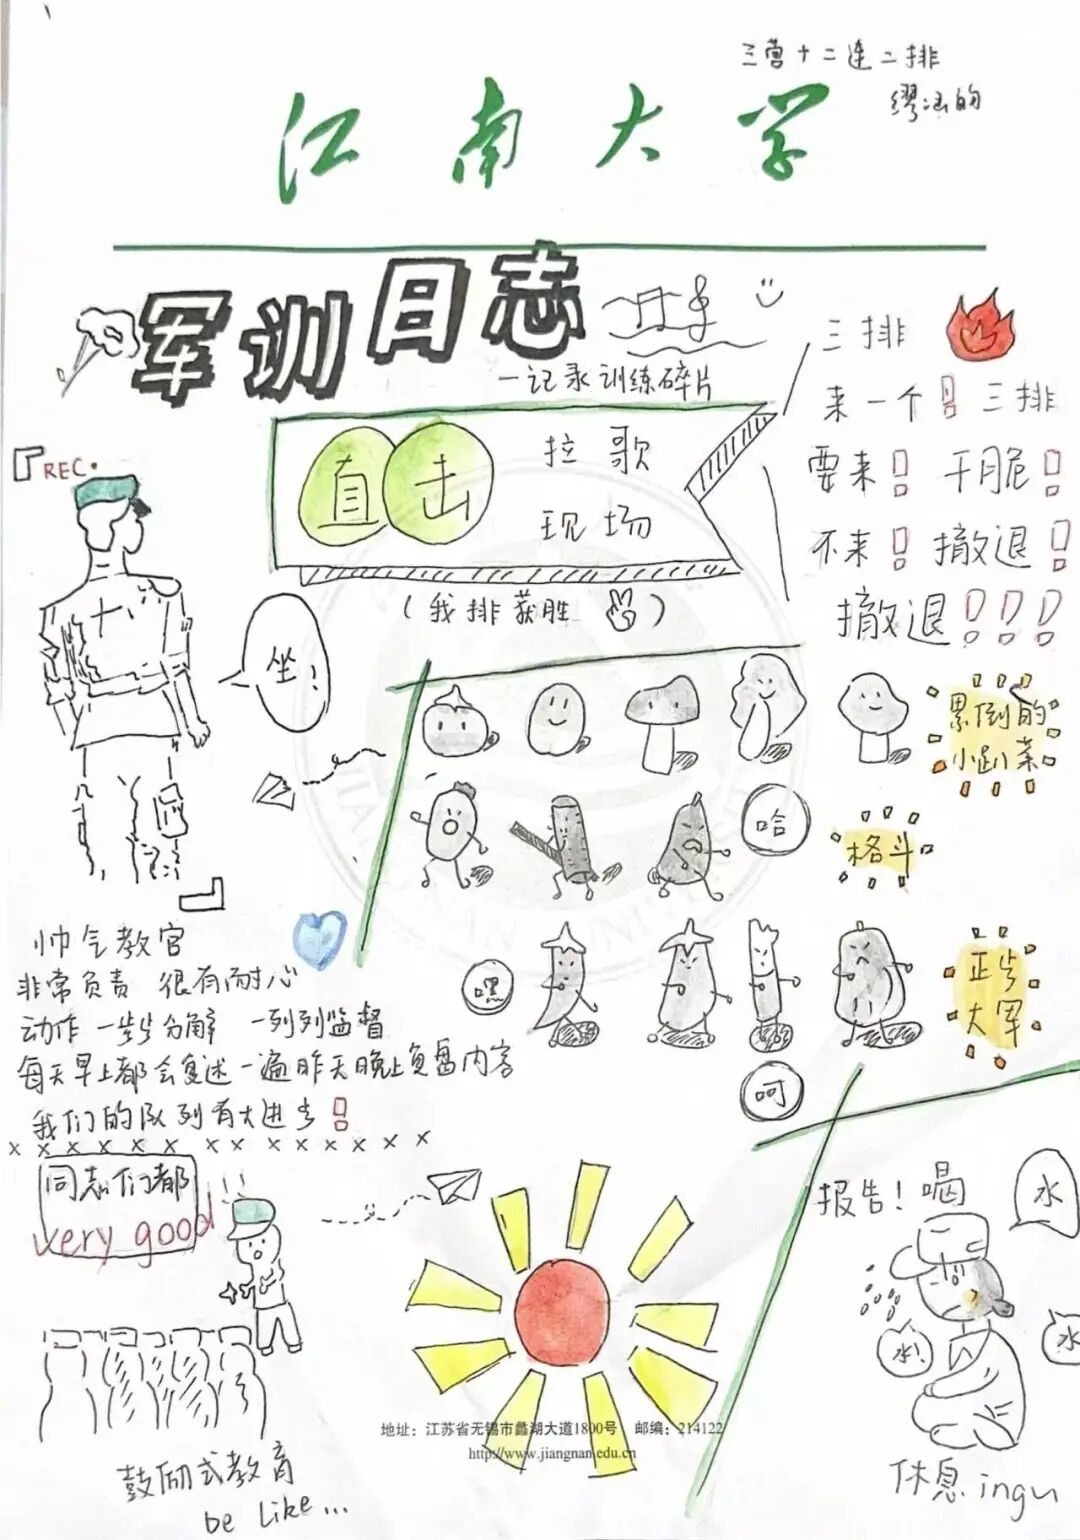 三营十二连二排
缪涵的
江南大学
军训日志
一记录训练碎片
REC.
直击
拉歌
现场
(我排获胜)
三排
来一个!三排
要来!干脆!
不来!撤退!
撤退!!!
坐!
累倒的
小趴菜
哈
格斗
嘿
正步
大军
呵
帅气教官
非常负责 很有耐心
动作一步步分解 一列列监督
每天早上都会复述一遍昨天晚上负盘内容
我们的队列有大进步!
同志们都
very good!!!
鼓励式教育
be like...
报告!喝
水
水!
水
休息ingu
地址:江苏省无锡市蠡湖大道1800号 邮编:214122
http://www.jiangnan.edu.cn